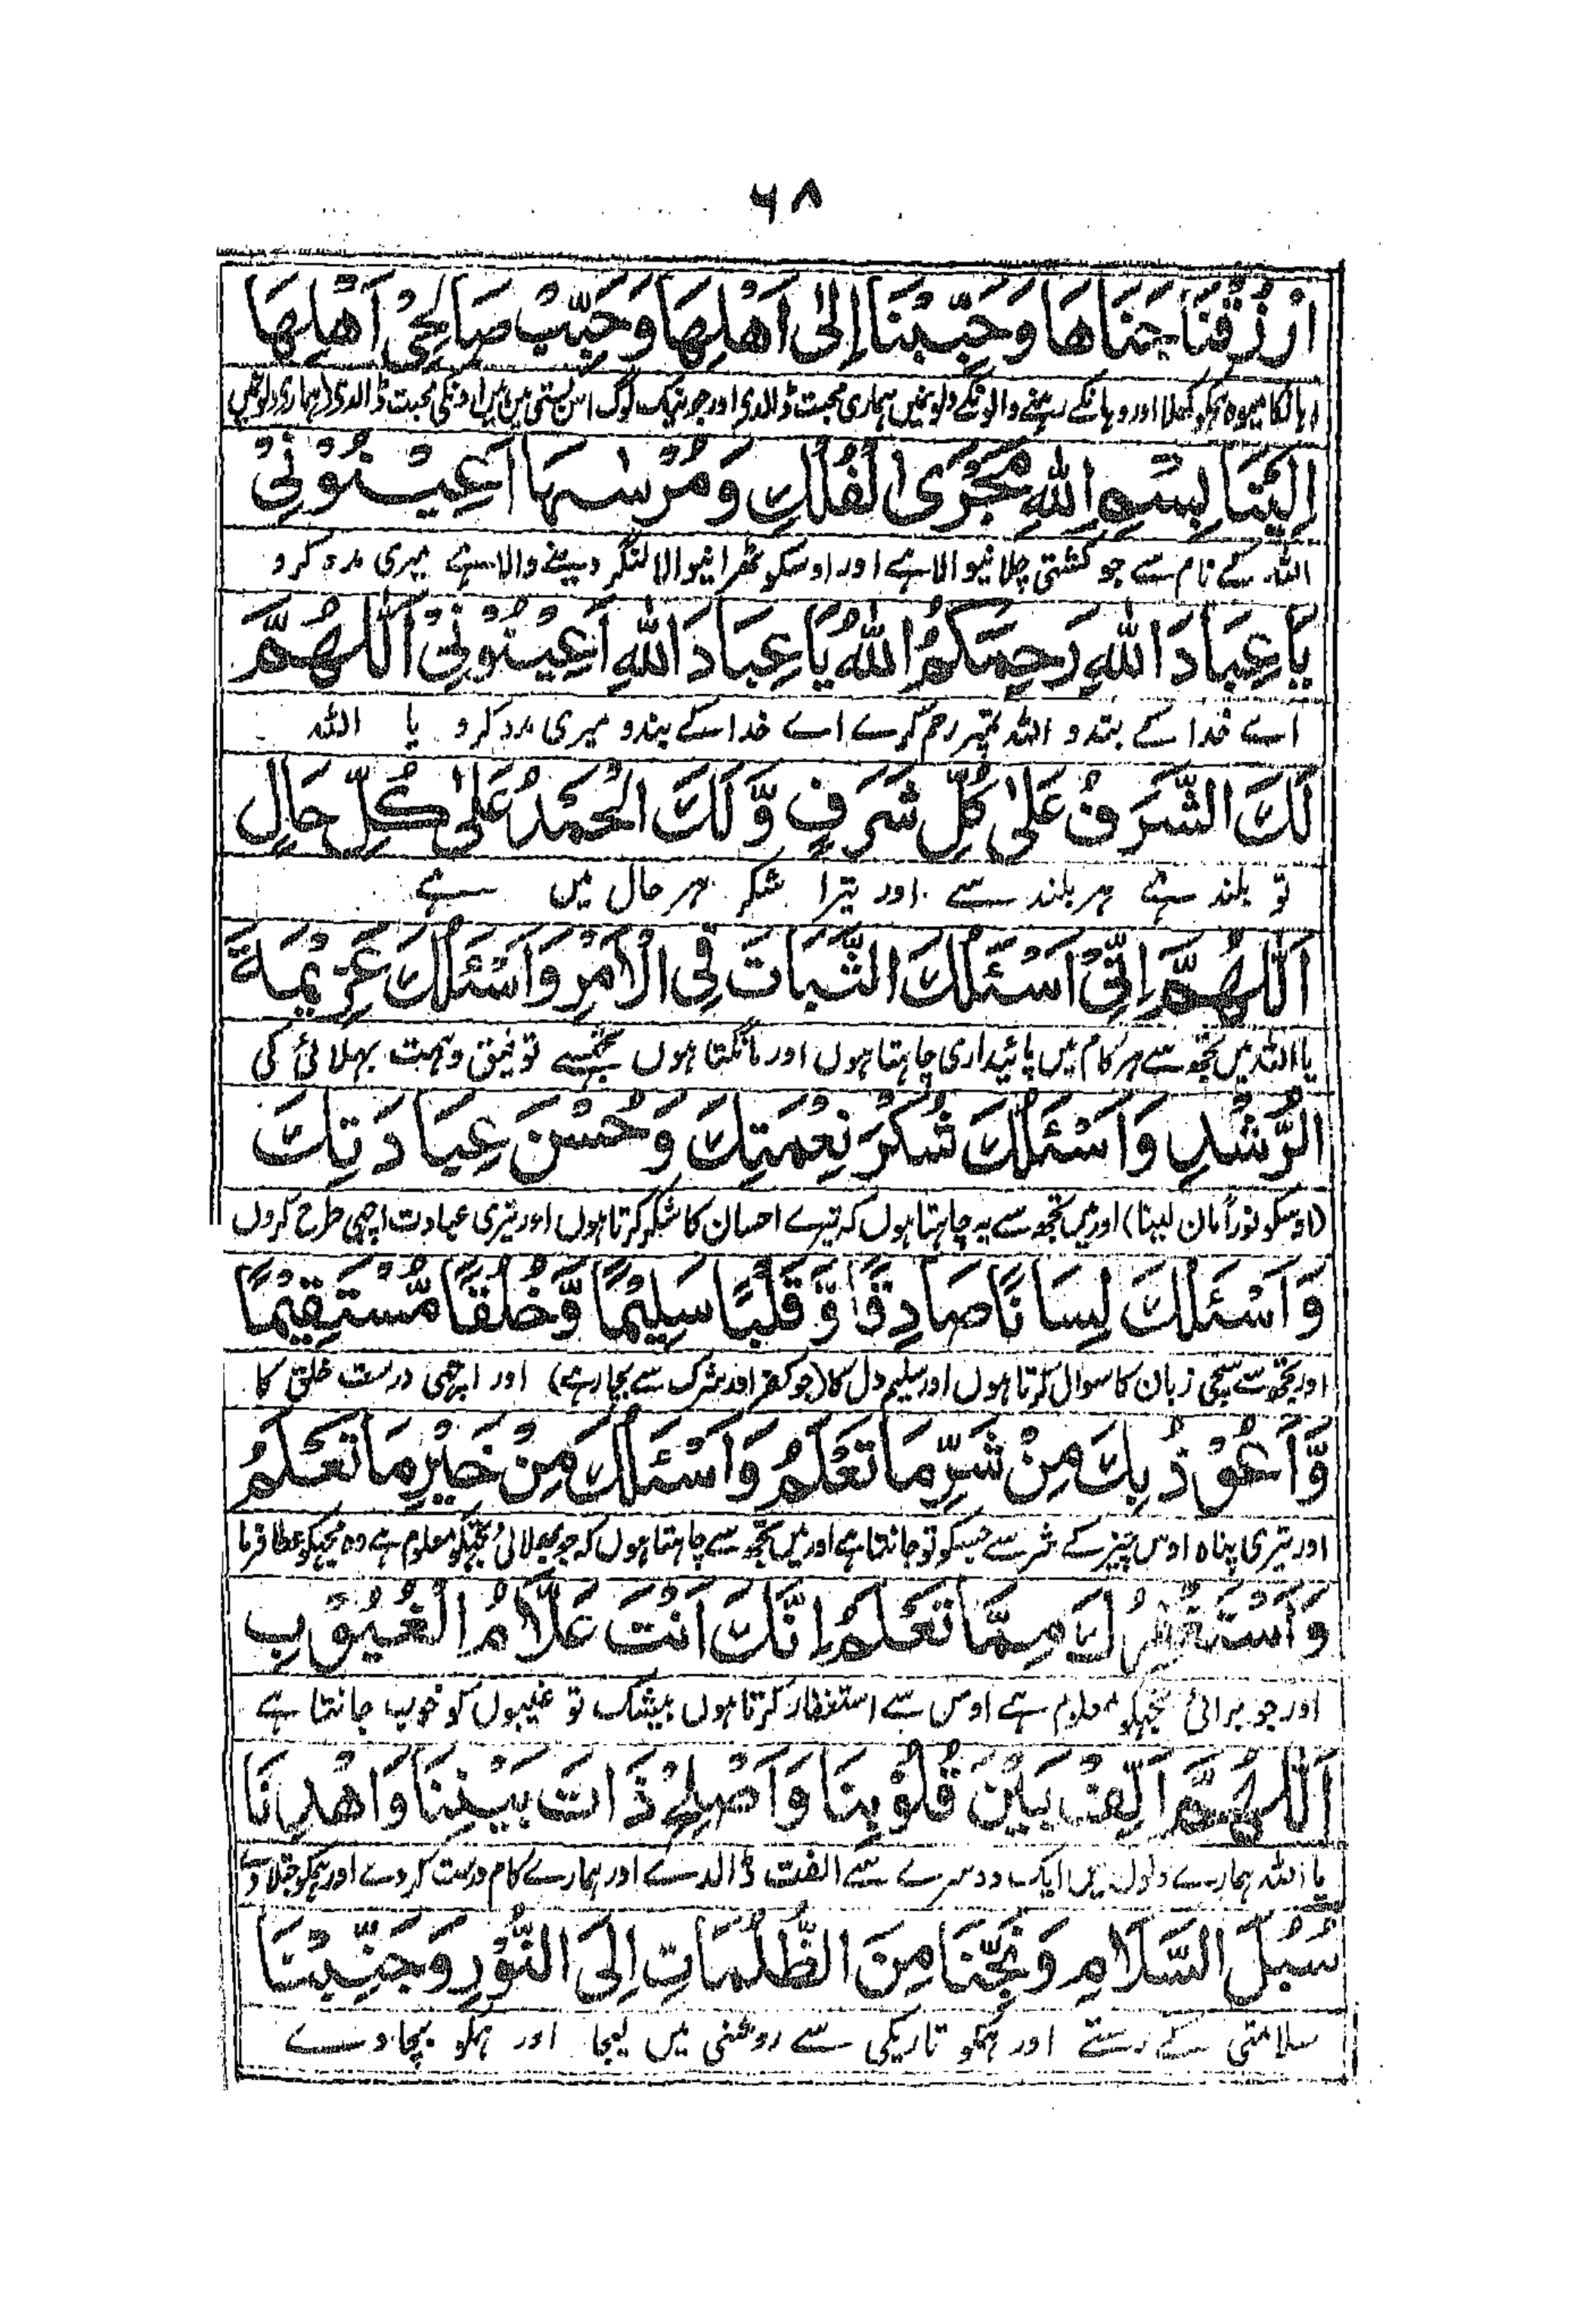 ۶۸
اُرْزُقْنَا جَنَاهَا وَحَبِّبْنَا اِلٰى اَهْلِهَا وَحَبِّبْ صَالِحِىْ اَهْلِهَا
وہانکا میوہ ہمکو کھلا اور وہانکے رہنے والونکے دلونمیں ہماری محبت ڈالدی اور جو نیک لوگ اس بستی میں ہیں اونکی محبت ڈالدی (ہماری دلونمیں
اِلَيْنَا بِسْمِ اللّٰهِ مَجْرَى الْفُلْكِ وَمُرْسٰهَا اَعِيْنُوْنِىْ
اللہ کے نام سے جو کشتی چلانیوالا ہے اور اوسکو ٹھرانیوالا لنگر دینے والا ہے میری مدد کرو
يَا عِبَادَ اللّٰهِ رَحِمَكُمُ اللّٰهُ يَا عِبَادَ اللّٰهِ اَعِيْنُوْنِىْ اَللّٰهُمَّ
اے خدا کے بندو اللہ تمپر رحم کرے اے خدا کے بندو میری مدد کرو یا اللہ
لَكَ الشَّرَفُ عَلٰى كُلِّ شَرَفٍ وَّلَكَ الْحَمْدُ عَلٰى كُلِّ حَالٍ
تو بلند ہے ہر بلند سے اور تیرا شکر ہر حال میں ہے
اَللّٰهُمَّ اِنِّىْ اَسْئَلُكَ الثَّبَاتَ فِى الْاَمْرِ وَاَسْئَلُكَ عَزِيْمَةَ
یا اللہ میں تجھ سے ہر کام میں پائیداری چاہتا ہوں اور مانگتا ہوں تجھسے توفیق و ہمت بہلائی کی
الرُّشْدِ وَاَسْئَلُكَ شُكْرَ نِعْمَتِكَ وَحُسْنَ عِبَادَتِكَ
(اوسکو فوراً مان لینا) اور میں تجھ سے یہ چاہتا ہوں کہ تیرے احسان کا شکر کرتا ہوں اور تیری عبادت اچھی طرح کروں
وَاَسْئَلُكَ لِسَانًا صَادِقًا وَّقَلْبًا سَلِيْمًا وَّخُلُقًا مُّسْتَقِيْمًا
اور تجھ سے سچی زبان کا سوال کرتا ہوں اور سلیم دل کا (جو کفر اور شرک سے بچا رہے) اور اچھی درست خلق کا
وَّاَعُوْذُ بِكَ مِنْ شَرِّ مَا تَعْلَمُ وَاَسْئَلُكَ مِنْ خَيْرِ مَا تَعْلَمُ
اور تیری پناہ اوس چیز کے شر سے جسکو تو جانتا ہے اور میں تجھ سے چاہتا ہوں کہ جو بھلائی تجھکو معلوم ہے وہ مجھکو عطا فرما
وَاَسْتَغْفِرُكَ مِمَّا تَعْلَمُ اِنَّكَ اَنْتَ عَلَّامُ الْغُيُوْبِ
اور جو برائی تجہکو معلوم ہے اوس سے استغفار کرتا ہوں بیشک تو غیبوں کو خوب جانتا ہے
اَللّٰهُمَّ اَلِّفْ بَيْنَ قُلُوْبِنَا وَاَصْلِحْ ذَاتَ بَيْنِنَا وَاهْدِنَا
یا اللہ ہمارے دلوں میں ایک دوسرے سے الفت ڈالدے اور ہمارے کام درست کر دے اور ہمکو بتلا دے
سُبُلَ السَّلَامِ وَنَجِّنَا مِنَ الظُّلُمَاتِ اِلَى النُّوْرِ وَجَنِّبْنَا
سلامتی کے رستے اور ہمکو تاریکی سے روشنی میں لیجا اور ہمکو بچا دے